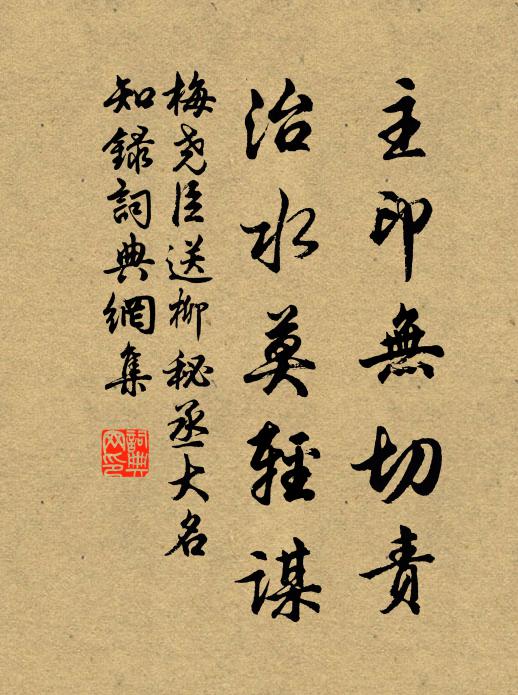 主印無切責
治水莫輕謀
梅堯臣送柳秘丞大名
知錄詞典網集
詞典
网印